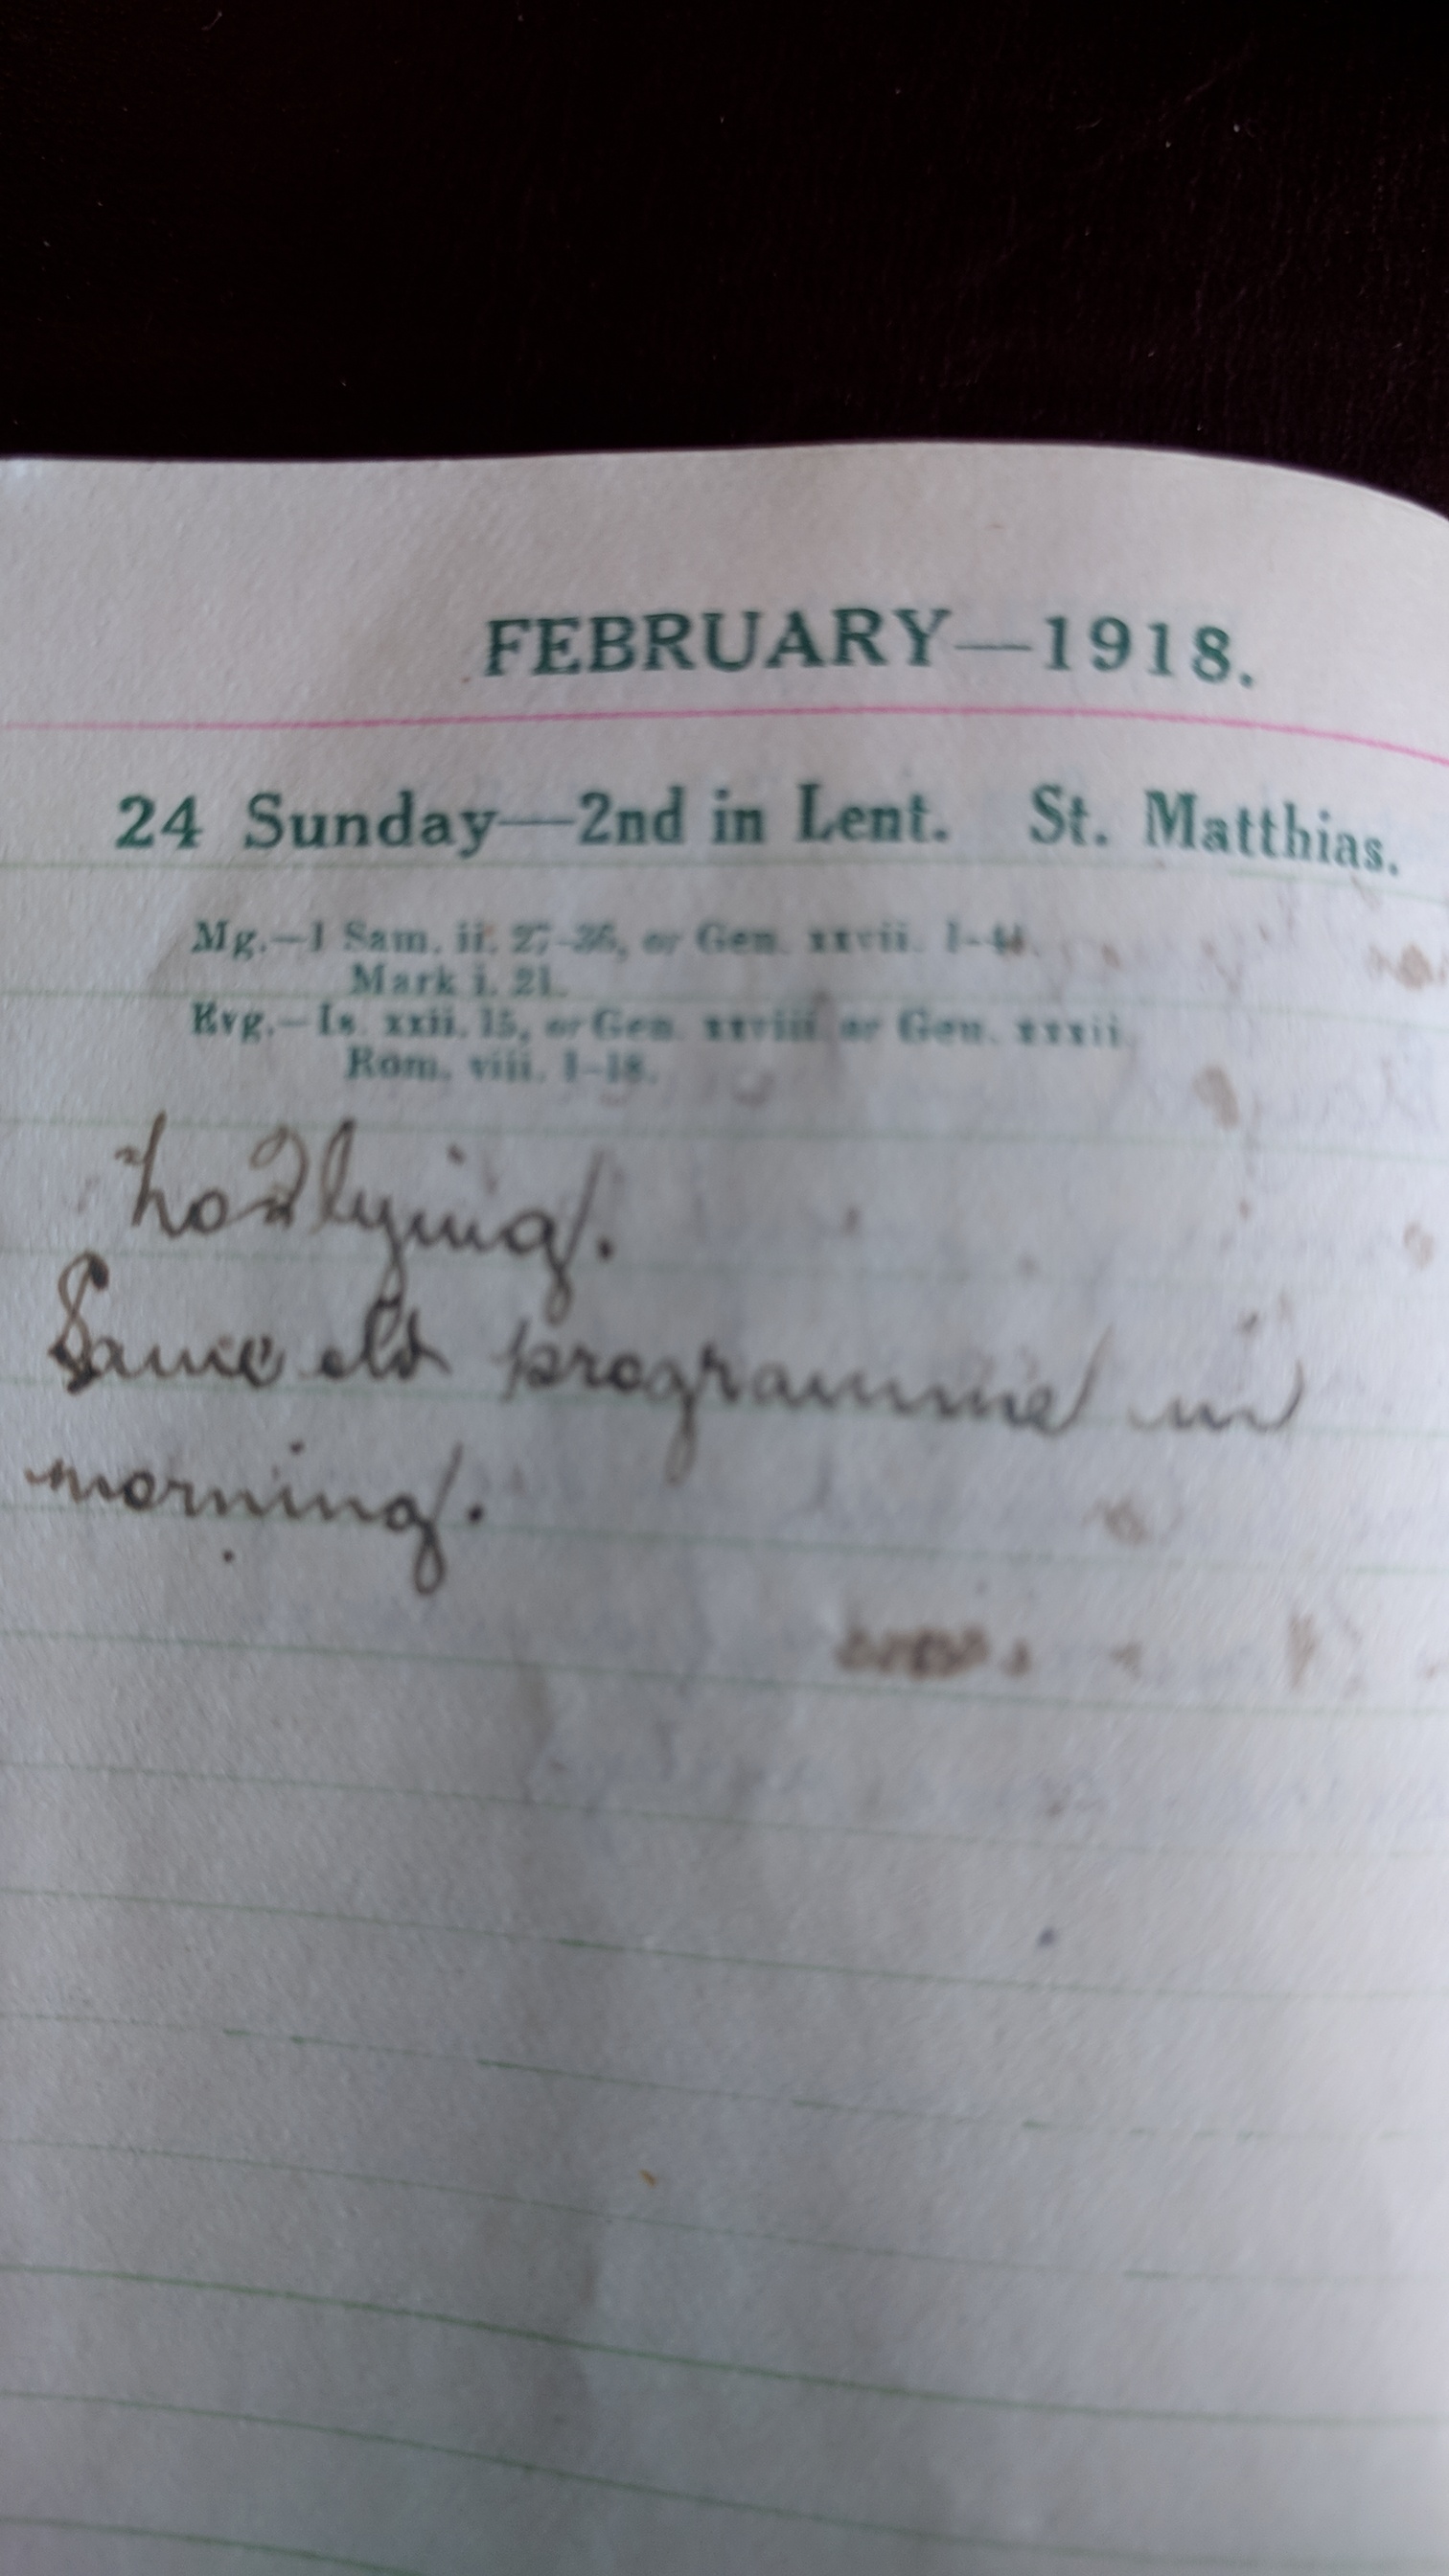 FEBRUARY—1918.
24 Sunday—2nd in Lent. St. Matthias.
Mg.—1 Sam. ii. 27–36, or Gen. xxvii. 1–41.
Mark i. 21.
Evg.—Is. xxii. 15, or Gen. xxviii. or Gen. xxxii.
Rom. viii. 1–18.
No flying.
Same old programme in
morning.